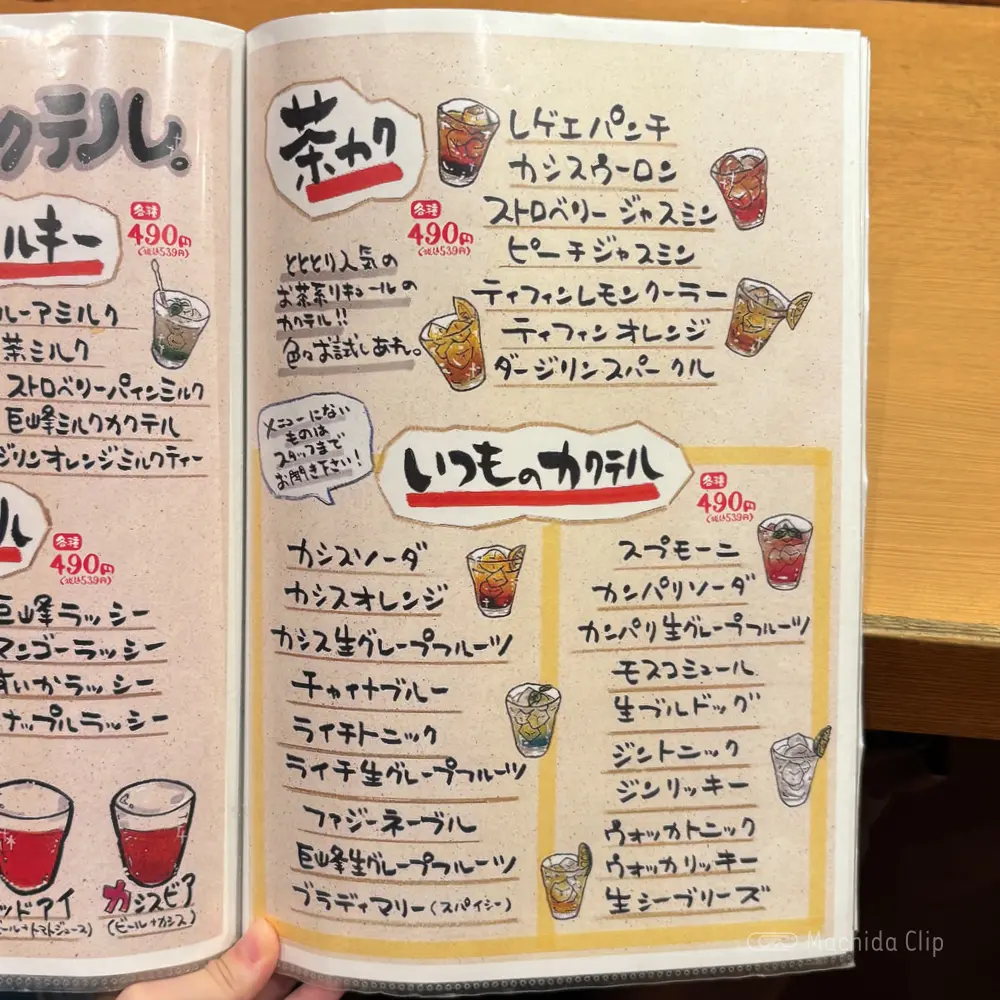 クテル。
ルキー
各種
490円
(税込539円)
ルーアミルク
茶ミルク
ストロベリーパインミルク
巨峰ミルクカクテル
ジリンオレンジミルクティー
ル
各種
490円
(税込539円)
巨峰ラッシー
マンゴーラッシー
すいかラッシー
ナップルラッシー
ッドアイ
ール+トマトジュース)
カシスビア
(ビール+カシス)
茶カク
各種
490円
(税込539円)
とととり人気の
お茶系リキュールの
カクテル!!
色々お試しあれ。
レゲエパンチ
カシスウーロン
ストロベリージャスミン
ピーチジャスミン
ティフィンレモンクーラー
ティフィンオレンジ
ダージリンスパークル
メニューにない
ものは
スタッフまで
お聞き下さい!
いつものカクテル
各種
490円
(税込539円)
カシスソーダ
カシスオレンジ
カシス生グレープフルーツ
チャイナブルー
ライチトニック
ライチ生グレープフルーツ
ファジーネーブル
巨峰生グレープフルーツ
ブラディマリー(スパイシー)
スプモーニ
カンパリソーダ
カンパリ生グレープフルーツ
モスコミュール
生ブルドッグ
ジントニック
ジンリッキー
ウォッカトニック
ウォッカリッキー
生シーブリーズ
Machida Clip